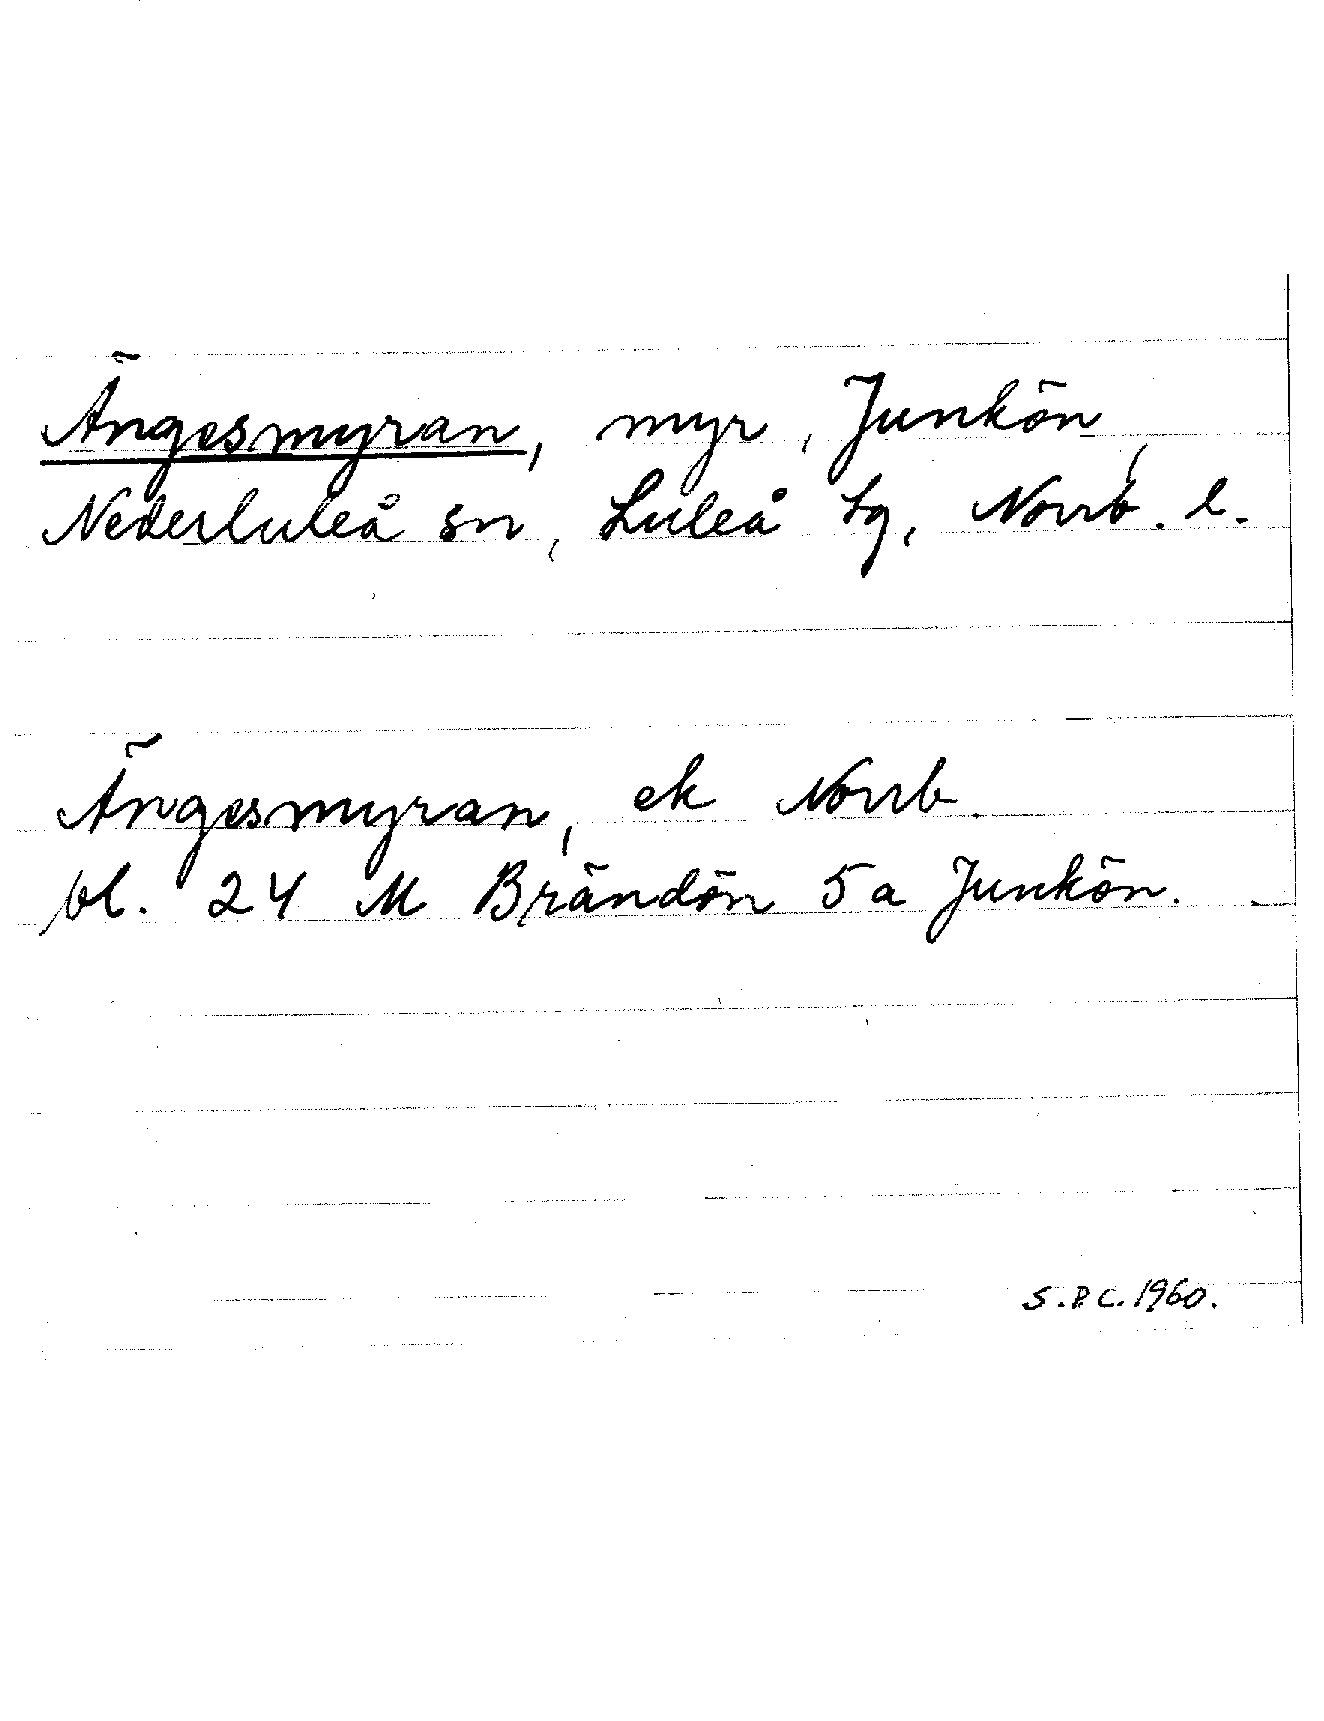 Ängesmyran, myr, Junkön,
Nederluleå sn, Luleå tg, Norrb. l.
Ängesmyran, ek Norrb.
bl. 24 M Brändön 5a Junkön.
S.P.C. 1960.